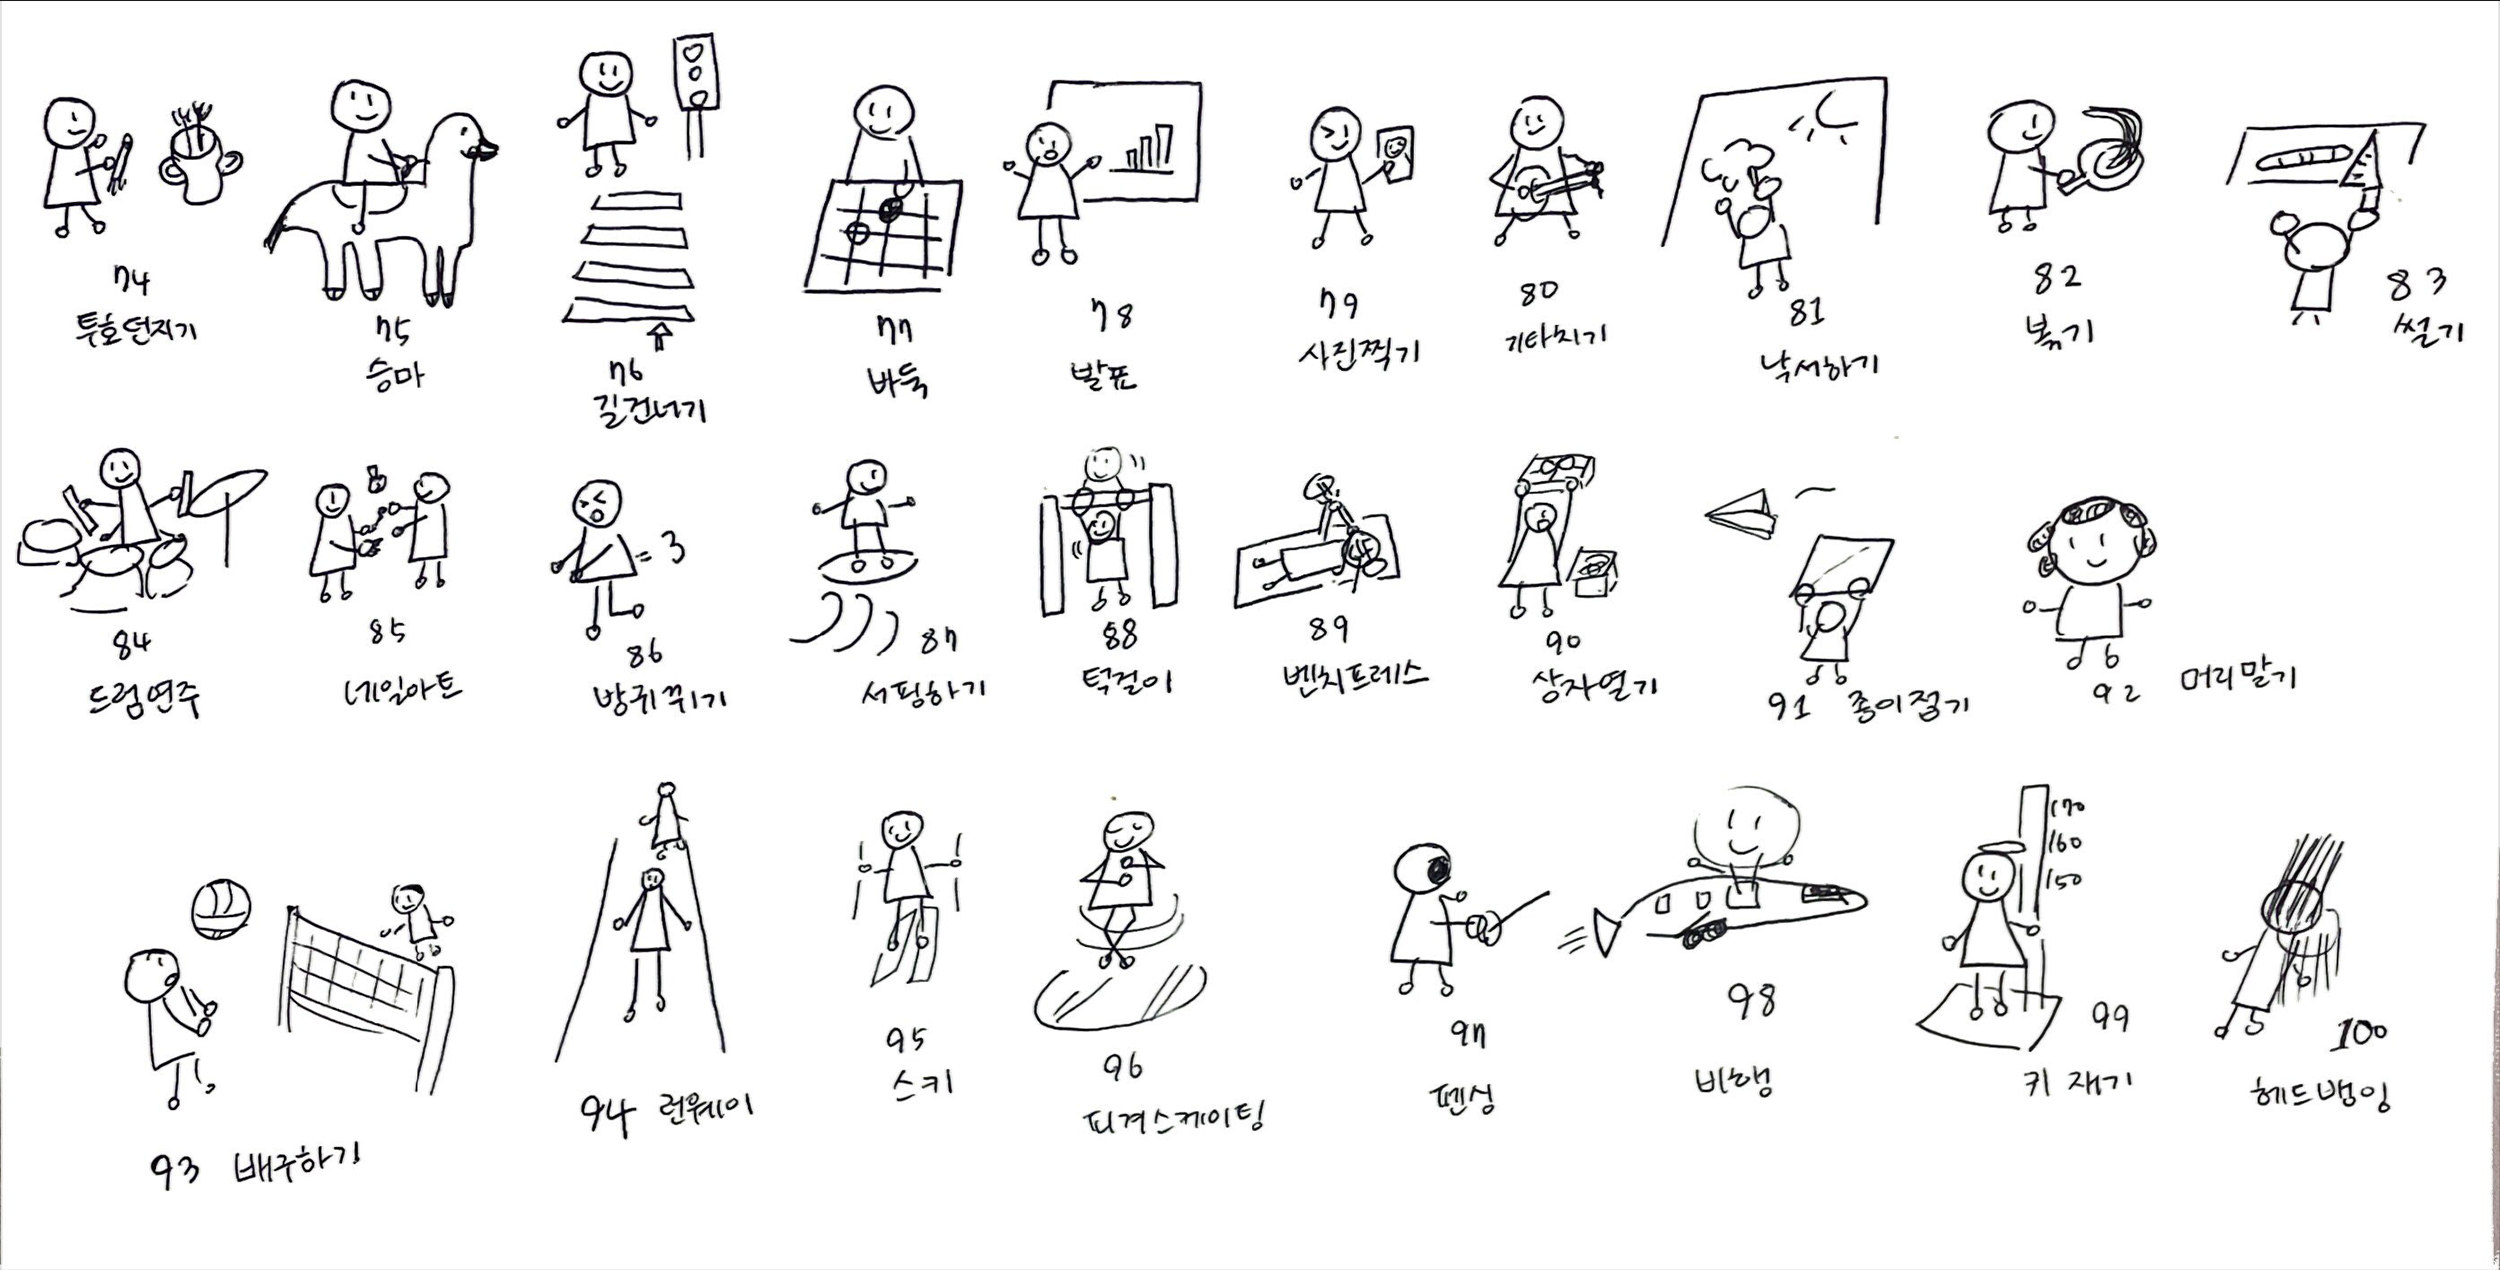 74
투호던지기
75
승마
76
길건너기
77
바둑
78
발표
79
사진찍기
80
기타치기
81
낙서하기
82
볶기
83
썰기
84
드럼연주
85
네일아트
=3
86
방귀뀌기
87
서핑하기
88
턱걸이
89
벤치프레스
90
상자열기
91 종이접기
92 머리말기
93 배구하기
94 런웨이
95
스키
96
피겨스케이팅
97
펜싱
98
비행
170
160
150
99
키 재기
100
헤드뱅잉